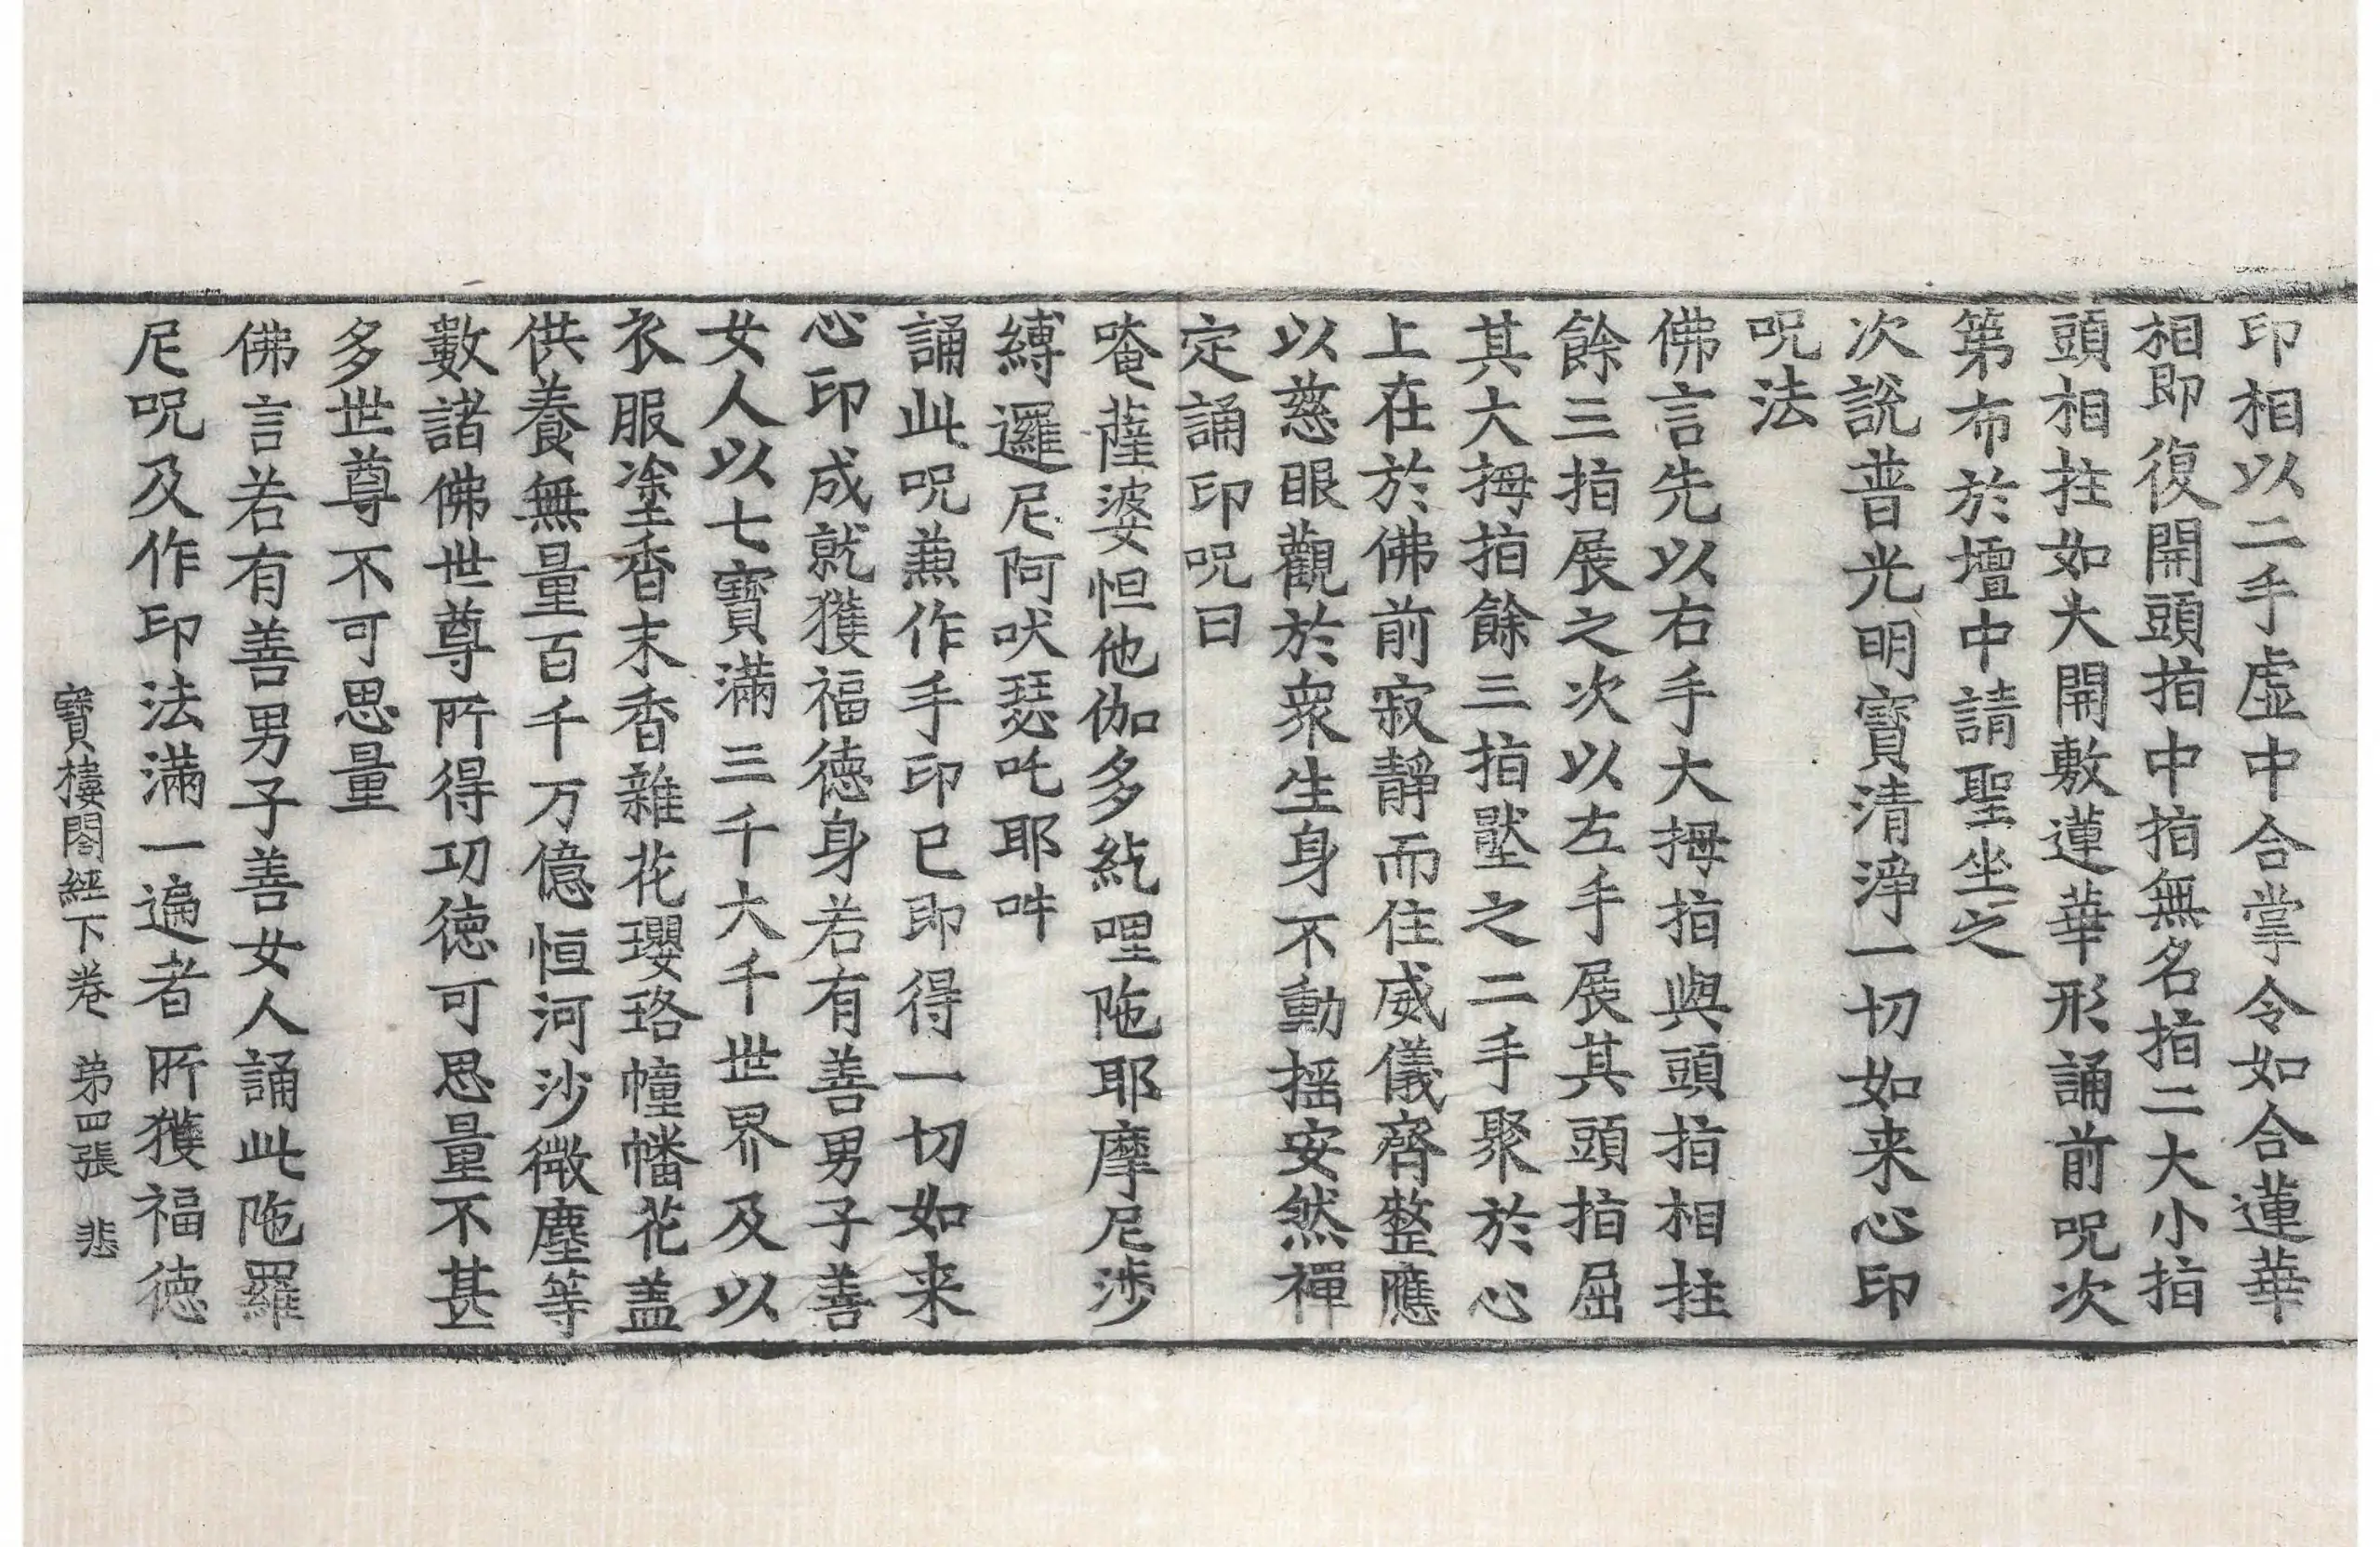 印相以二手虛中合掌令如合蓮華
相即復開頭指中指無名指二大小指
頭相拄如大開敷蓮華形誦前呪次
第布於壇中請聖坐之
次說普光明寶清淨一切如来心印
呪法
佛言先以右手大拇指與頭指相拄
餘三指展之次以左手展其頭指屈
其大拇指餘三指壓之二手聚於心
上在於佛前寂靜而住威儀齊整應
以慈眼觀於衆生身不動搖安然禪
定誦印呪曰
唵薩婆怛他伽多紇哩陁耶摩尼涉
縛邏尼阿吠瑟吒耶吽
誦此呪兼作手印已即得一切如来
心印成就獲福德身若有善男子善
女人以七寶滿三千大千世界及以
衣服塗香末香雜花瓔珞幢幡花盖
供養無量百千万億恒河沙微塵等
數諸佛世尊所得功德可思量不甚
多世尊不可思量
佛言若有善男子善女人誦此陁羅
尼呪及作印法滿一遍者所獲福德
寶樓閣經下卷 第四張 悲